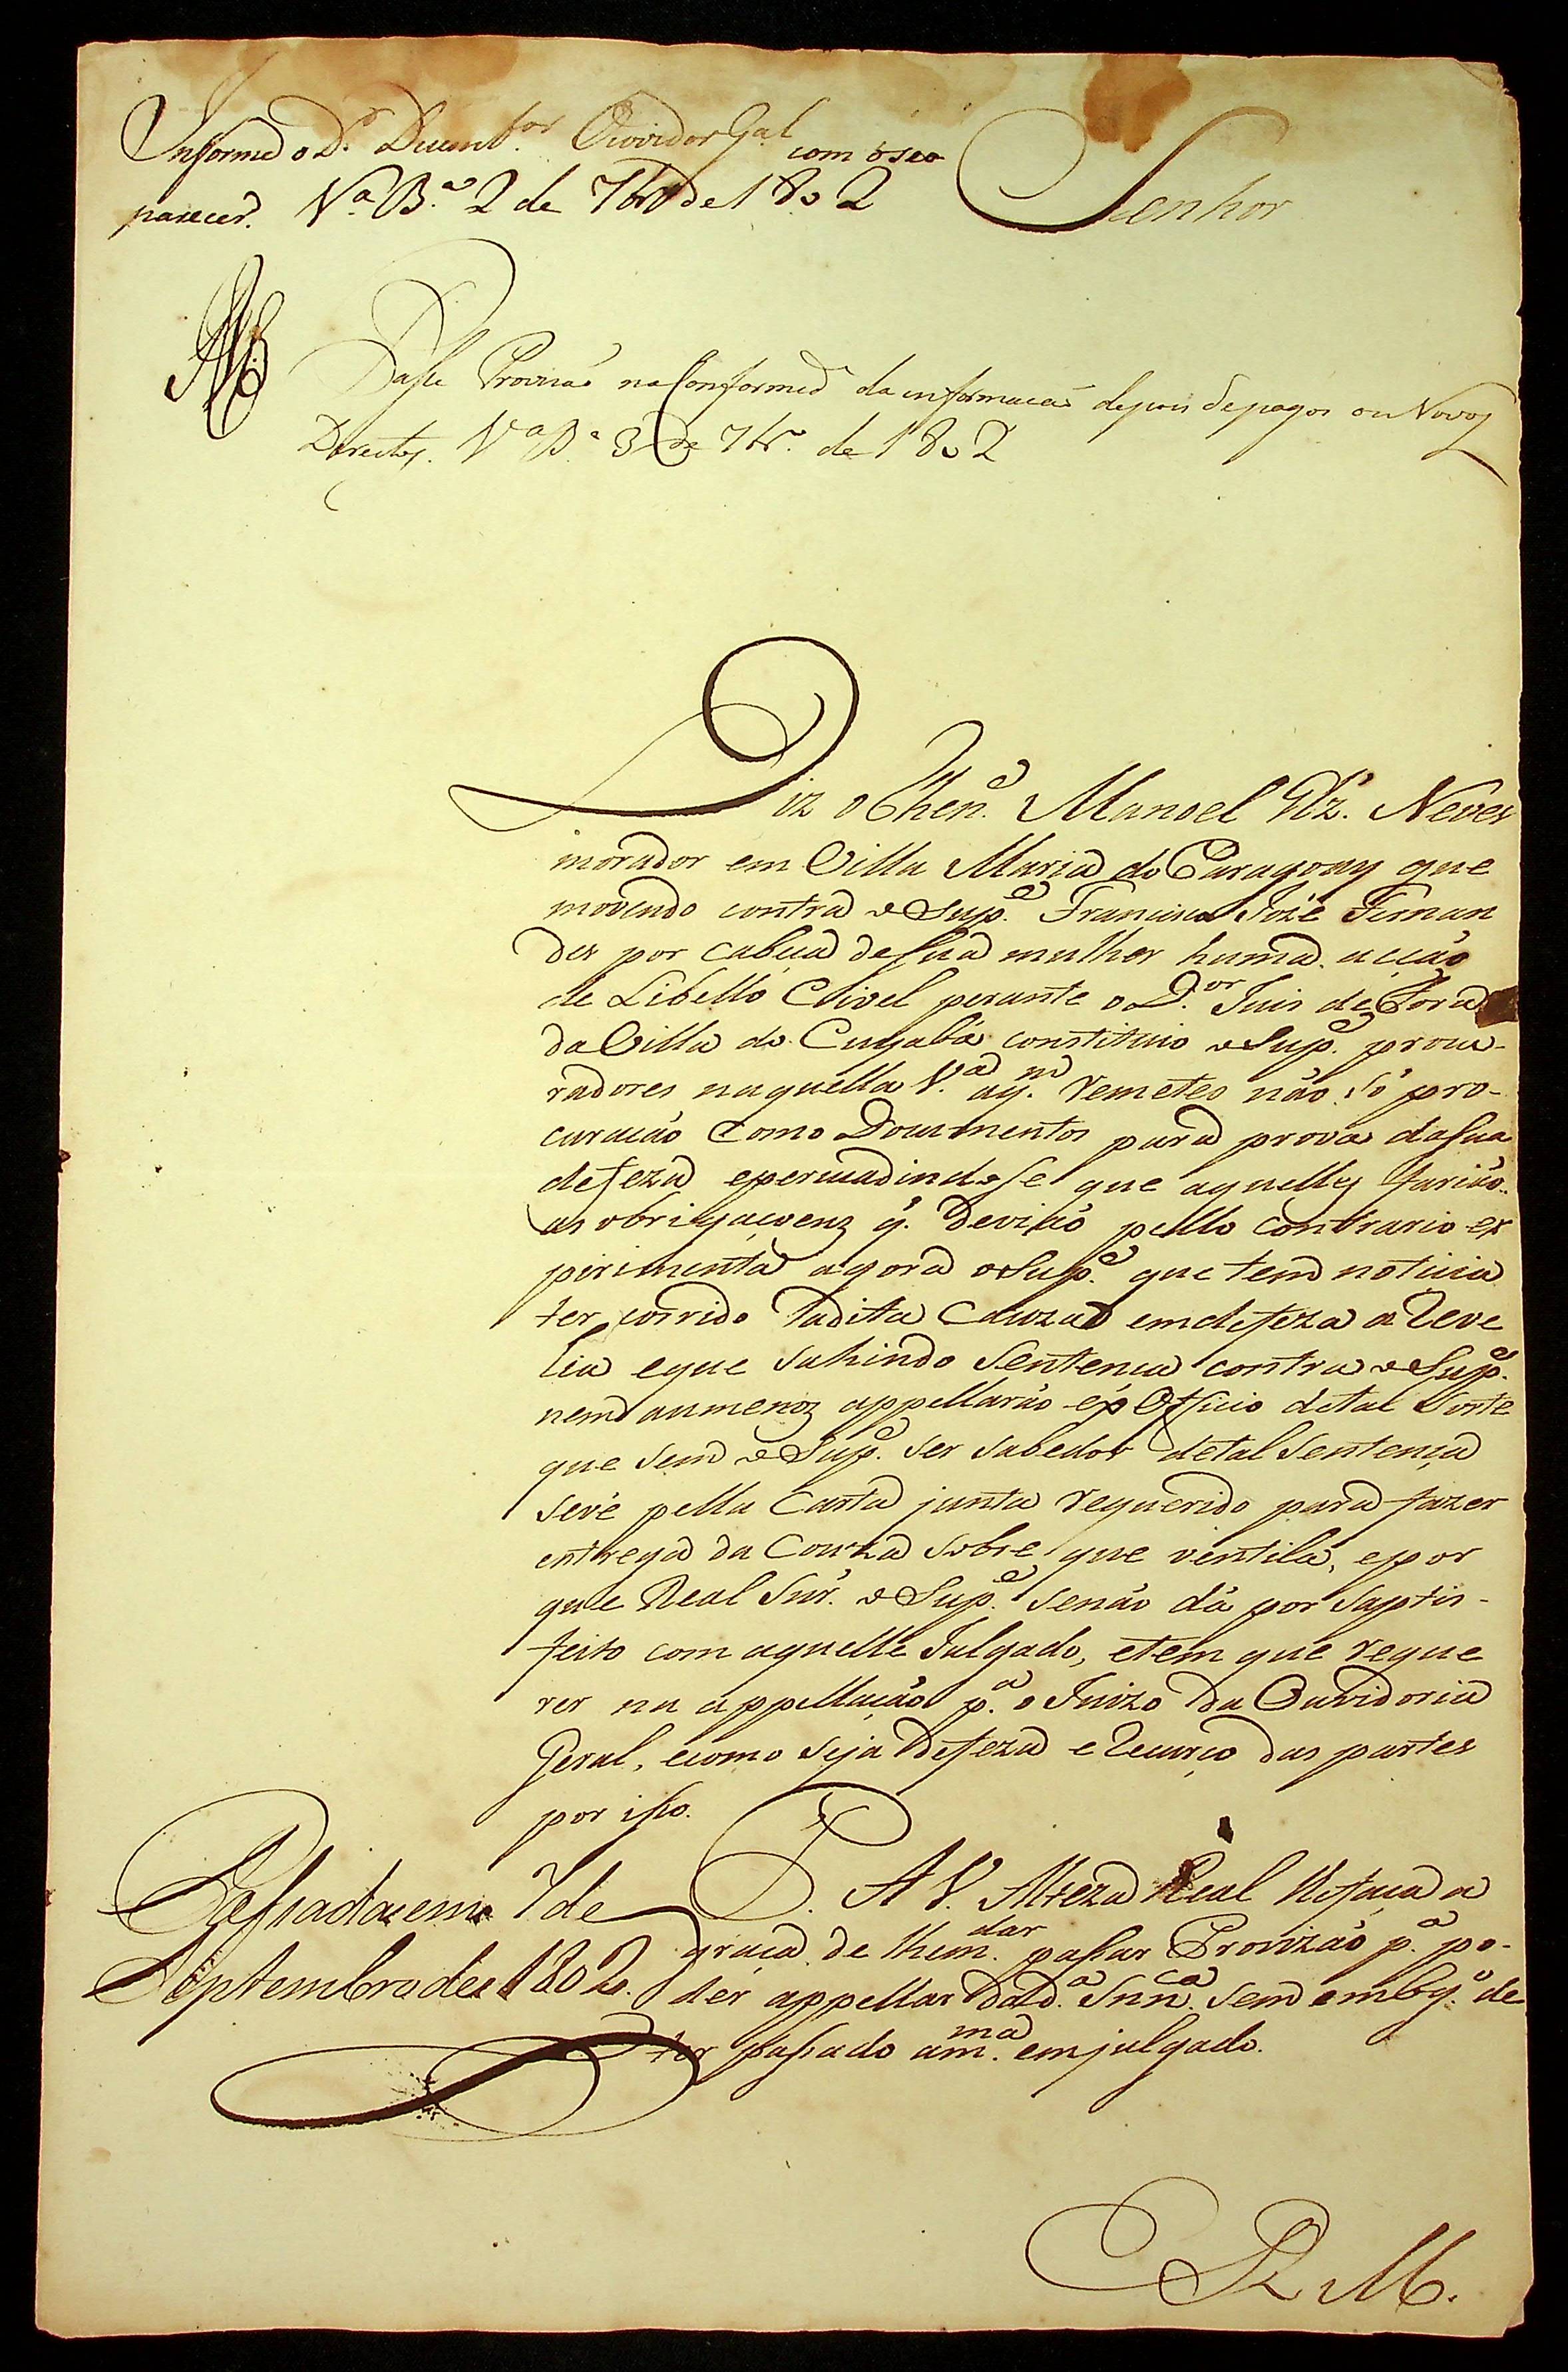 Informe o D.r Dezemb.or Ouvidor G.al com o seo
parecer. V.a B.a 2 de 7br.o de 1802
Senhor
Passe Provizaõ na Conformid.e da informacaõ depois de pagos os Novos
Direitos. V.a B.a 3 de 7br.o de 1802
Diz o Then.e Manoel Roiz. Neves
morador em Villa Maria do Paragoay que
movendo contra o Sup.e Francisco Jozé Fernan
des por cabeca de sua mulher huma acçaõ
de Libello Civel perante o D.or Juis de Fora
da Villa do Cuyabá constituio o Sup.e procu-
radores naquella V.a a q.m remeteo naõ só pro-
curacaõ como Documentos para prova da sua
defeza e persuadindose que aquelles fariaõ
as obrigaçoens q. deviaõ pello contrario ex
pirimenta agora o Sup.e que tem noticia
ter corrido a dita Cauza em defeza a Reve
lia e que sahindo Sentenca contra o Sup.e
nem aumenos appellaraõ ex Officio de tal sorte
que sem o Sup.e ser sabedor de tal Sentença
sevé pella Carta junta requerido para fazer
entrega da Couza sobre que ventila, e por
que Real Snr. o Sup.e senaõ dá por saptis-
feito com aquelle Julgado, e tem que reque
rer na appellacaõ p.a o Juizo da Ouvidoria
Geral, e como seja defeza e recurço das partes
por isso.
P. A V. Alteza Real lhe faca a
graca de lhe m.dar passar Provizaõ p.a po-
der appellar da d.a Snn.ca sem embg.o de
ter passado a m.ma em julgado.
Passada em 7 de
Septembro de 1802.
E R M.